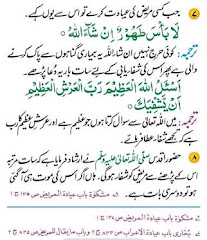 ۷ جب کسی مریض کی عیادت کرے تو اس سے یوں کہے۔
لَا بَأْسَ طَهُوْرٌ اِنْ شَآءَ اللّٰهُ
ترجمہ: کوئی حرج نہیں ان شاء اللہ یہ بیماری گناہوں سے پاک کرنے
والی ہے پھر اس کی شفایابی کے لئے سات بار یہ دعا پڑھے۔
اَسْئَلُ اللّٰهَ الْعَظِيْمَ رَبَّ الْعَرْشِ الْعَظِيْمِ
اَنْ يَّشْفِيَكَ
ترجمہ: میں اللہ سے سوال کرتا ہوں جو عظیم ہے اور عرش عظیم کا رب
ہے کہ تجھے شفا عطا فرمائے۔
۸ حضور اقدس صلی اللہ تعالی علیہ وسلم نے ارشاد فرمایا ہے کہ سات مرتبہ
اس کے پڑھنے سے مریض کو شفا ہوگی۔ ہاں اگر اس کی موت ہی آگئی
ہو تو دوسری بات ہے۔
مشکوٰۃ باب عیادۃ المریض ص ۱۳۵ ج ۱
مشکوٰۃ باب عیادۃ المریض ص ۱۳۷ ج ۱